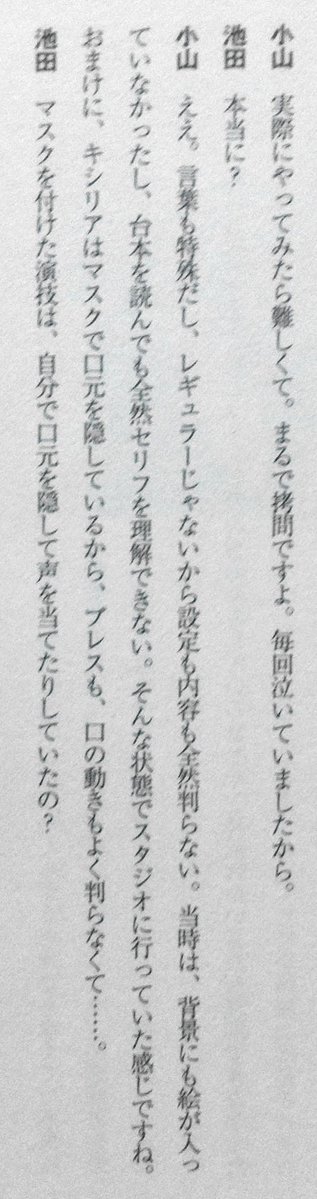 小山　実際にやってみたら難しくて。まるで拷問ですよ。毎回泣いていましたから。
池田　本当に？
小山　ええ。言葉も特殊だし、レギュラーじゃないから設定も内容も全然判らない。当時は、背景にも絵が入っ
ていなかったし、台本を読んでも全然セリフを理解できない。そんな状態でスタジオに行っていた感じですね。
おまけに、キシリアはマスクで口元を隠しているから、ブレスも、口の動きもよく判らなくて……。
池田　マスクを付けた演技は、自分で口元を隠して声を当てたりしていたの？